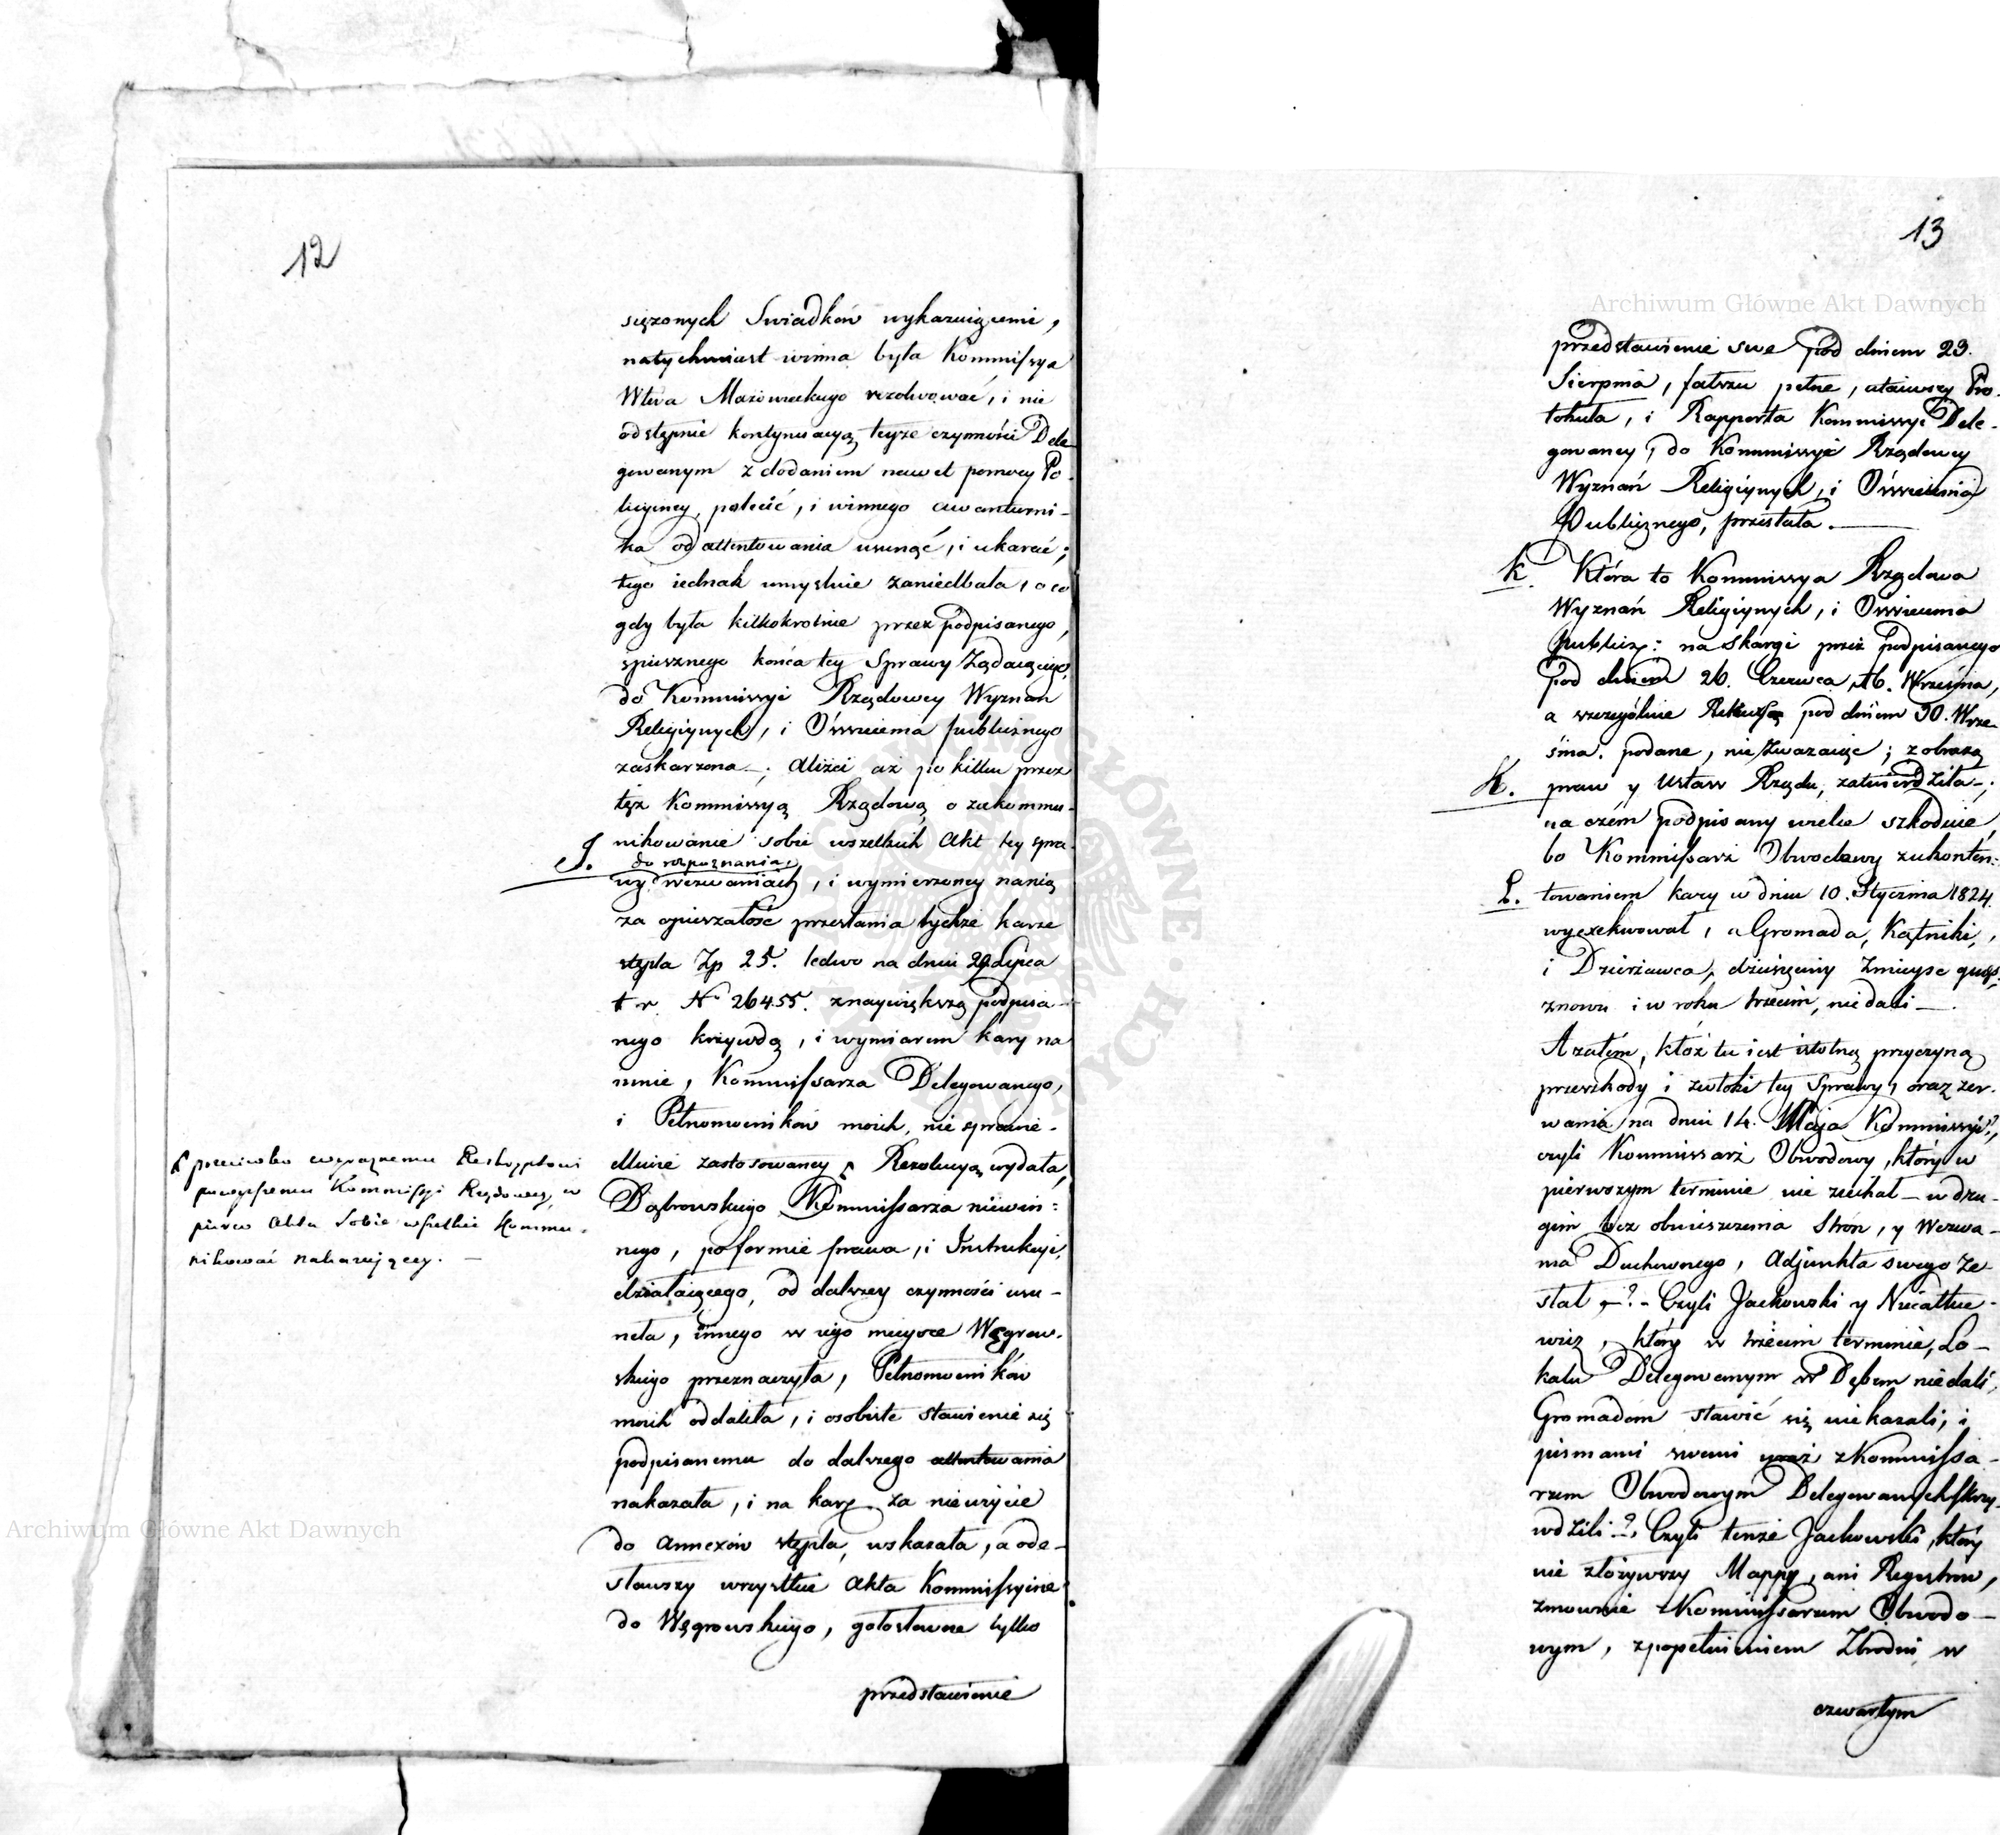 12
siężonych Swiadków wykazuiącemi,
natychmiast winna była Kommissya
Wtwa Mazowieckiego rezolwować, i nie
odstępnie kontynuacyą teyże czynności Dele-
gowanym z dodaniem nawet pomocy Po-
licyiney, polecić, i winnego awanturni-
ka od attentowania usunąć, i ukarać;
tego iednak umyslnie zaniedbała, o co
gdy była kilkokrotnie przez podpisanego,
spiesznego końca tey Sprawy Żądaiącego,
do Kommissyi Rządowey Wyznań
Religiynych, i Oświecenia publicznego
zaskarzona —; aliżci aż po kilku przez
tęż Kommissyą Rządową o zakommu-
J. nikowanie sobie wszelkich Akt tey spra-
do rozpoznania
wy wezwaniach, i wymierzoney nanią
za opieszałość przesłania tychże karze
stępla Zp 25. ledwo na dniu 29 Lipca
t r. No 26455. znaywiększą podpisa-
nego krzywdą, i wymiarem kary na
mnie, Kommissarza Delegowanego,
i Pełnomocników moich, nie sprawie-
dliwie zastosowaney Rezolucyą wydała,
Dąbrowskiego Kommissarza niewin:
nego, po formie prawa, i Instrukcyi,
działaiącego, od dalszey czynności usu-
neła, innego w iego mieysce Węgrow-
skiego przeznaczyła, Pełnomocników
moich oddaliła, i osobiste stawienie się
podpisanemu do dalszego attentowania
nakazała, i na karę za nieużycie
do Annexów stępla, wskazała, a ode-
sławszy wszystkie Akta Kommissyine
do Węgrowskiego, gołosłowne tylko
przedstawienie
przeciwko wyraznemu Reskryptowi
powyższemu Kommissyi Rządowey, w
pierw Akta Sobie wszelkie kommu-
nikować nakazuiącey. —
13
przedstawienie swe pod dniem 23.
Sierpnia, fałszu pełne, utaiwszy Pro-
tokuła, i Rapporta Kommissyi Dele-
gowaney, do Kommissyi Rządowey
Wyznań Religiynych, i Oświecenia
Publicznego, przesłała. —
K. Która to Kommissya Rządowa
Wyznań Religiynych, i Oświecenia
publicz: na skargi przez podpisanego
pod dniem 26. Czerwca, 16. Września,
a szczególnie pod dniem 30. Wrze-
śnia. podane, nie zwazaiąc; z obrazą
K. praw y Ustaw Rządu, zatwierdziła —;
na czém podpisany wiele szkoduie,
bo Kommissarz Obwodowy zukonten:
L. towaniem kary w dniu 10. Stycznia 1824.
wyexekwował, a Gromada, Kątniki,
i Dzierżawca, dziesięciny
znowu i w roku trzecim, nie dali —.
A zatém, któż tu iest istotną przyczyną
przeszkody i zwłoki tey Sprawy, oraz zer-
wania na dniu 14. Maja Kommissyi?,
czyli Kommissarz Obwodowy, który w
pierwszym terminie nie ziechał — w dru-
gim bez obwieszczenia Strón, y Wezwa-
nia Duchownego, Adjunkta swego Ze-
słał —?. – Czyli Jackowski y
wicz, który w trzecim terminie, Lo-
kalu Delegowanym w Dębem nie dali,
Gromadom stawić się nie kazali, i
pismami swemi z Kommissa-
rzem Obwodowym Delegowanych skrzy-
wdzili —?. Czyli tenże Jackowski, który
nie złożywszy Mappy, ani Regestrow,
zmownie z Kommissarzem Obwodo-
wym, z popełnieniem Zbrodni, w
czwartym
Archiwum Główne Akt Dawnych
Archiwum Główne Akt Dawnych